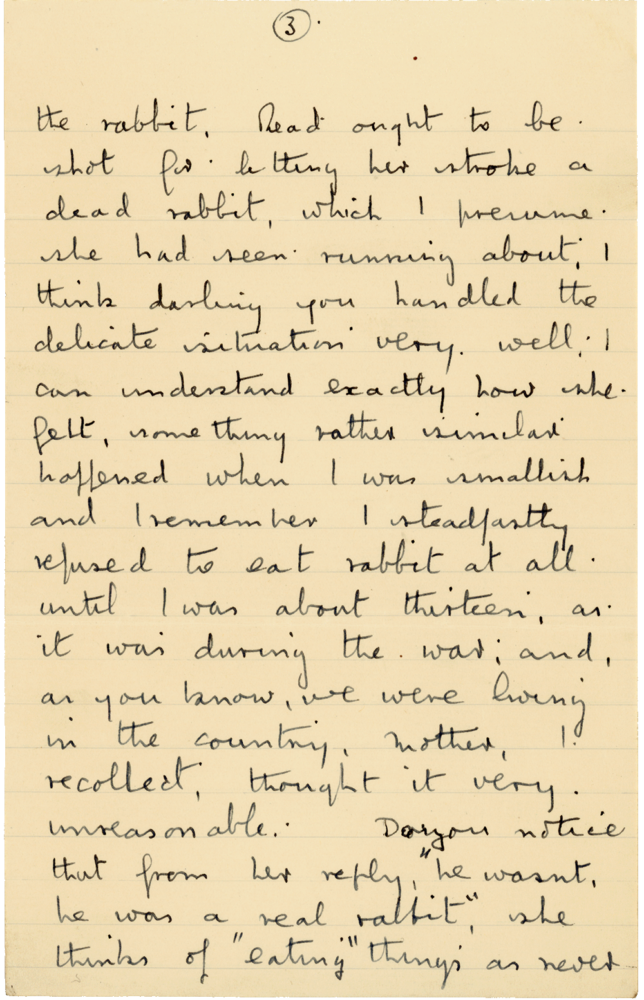 3.
the rabbit. Read ought to be
shot for letting her stroke a
dead rabbit, which I presume
she had seen running about; I
think darling you handled the
delicate situation very well; I
can understand exactly how she
felt, something rather similar
happened when I was smallish
and I remember I steadfastly
refused to eat rabbit at all
until I was about thirteen, as
it was during the war; and,
as you know, we were living
in the country, Mother, I
recollect, thought it very
unreasonable. Do you notice
that from her reply, "he wasnt,
he was a real rabbit", she
thinks of "eating" things as never